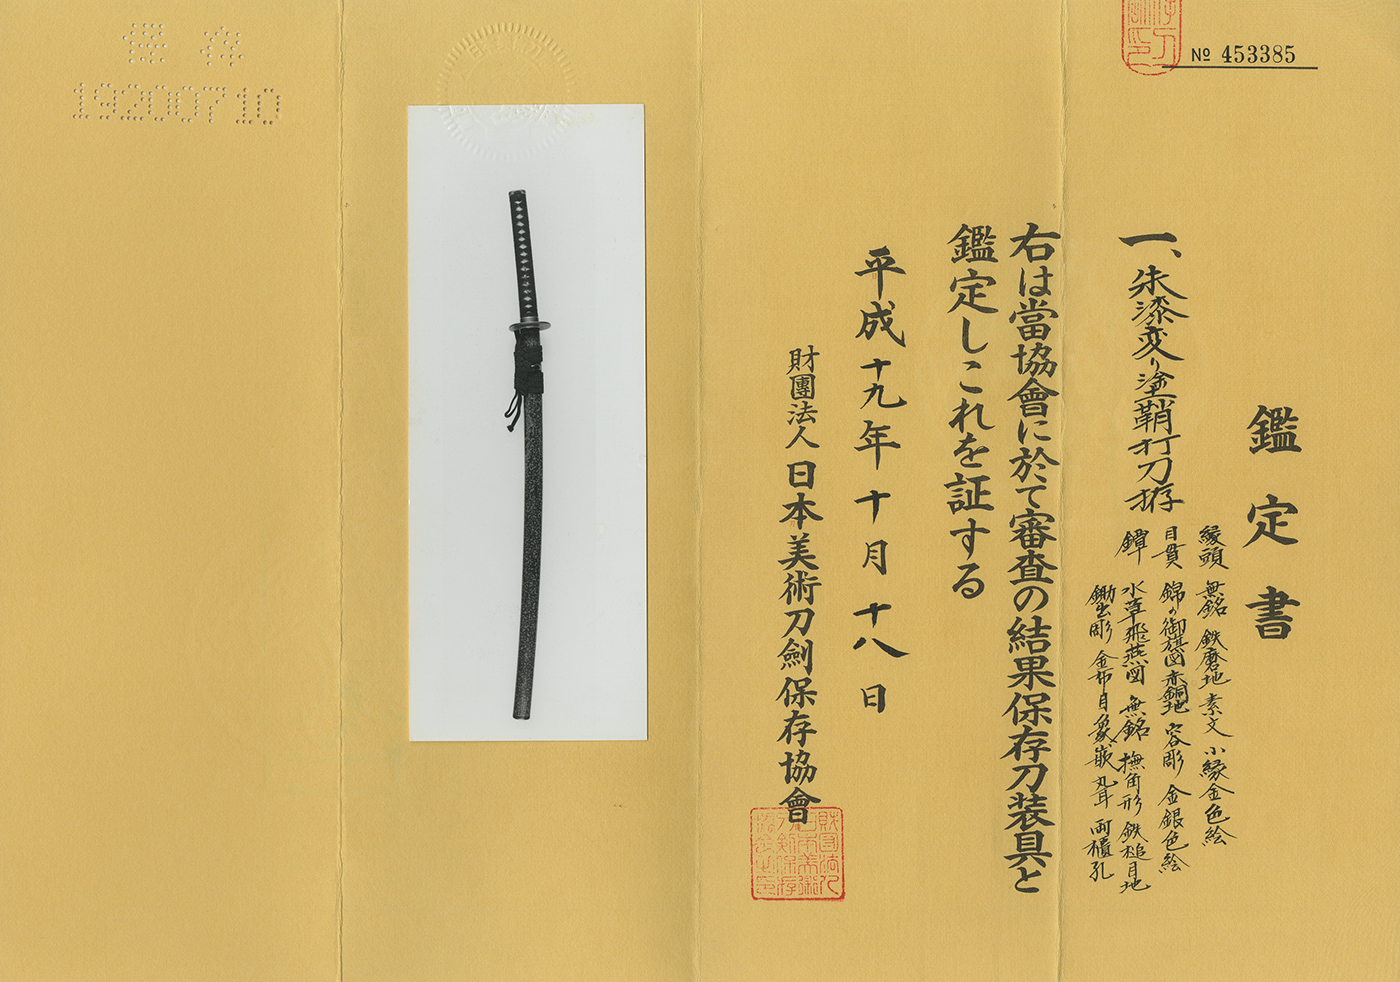 № 453385
鑑定書
一、朱漆変り塗鞘打刀拵
縁頭 無銘 鉄磨地 素文 小縁金色絵
目貫 錦の御旗図 赤銅地 容彫 金銀色絵
鐔 水草飛燕図 無銘 撫角形 鉄槌目地
鋤出彫 金布目象嵌 丸耳 両櫃孔
右は當協會に於て審査の結果保存刀装具と
鑑定しこれを証する
平成十九年十月十八日
財團法人日本美術刀劍保存協會
保存
19200710